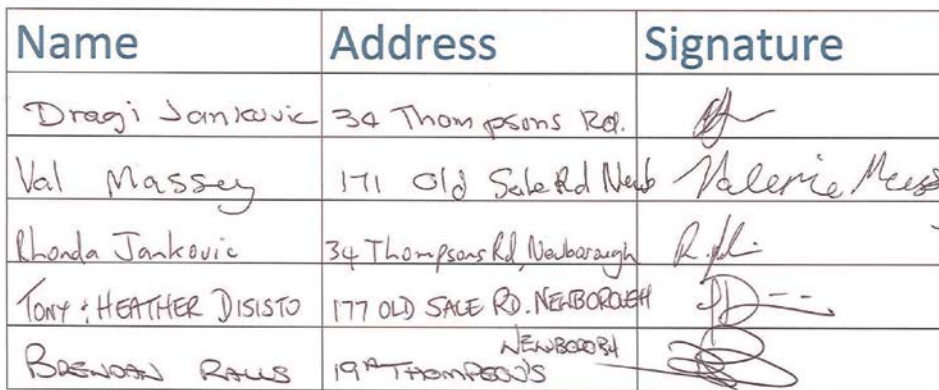 Name Address Signature
Dragi Jankovic 34 Thompsons Rd.
Val Massey 171 Old Sale Rd Newb Valerie
Rhonda Jankovic 34 Thompsons Rd, Newborough
TONY & HEATHER DISISTO 177 OLD SALE RD. NEWBOROUGH
BRENDAN 19A THOMPSON'S